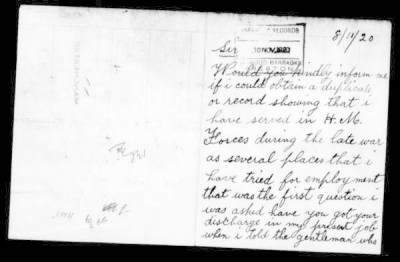 8/11/20
RECORDS
10 NOV 1920
BARRACKS
Sir
Would you kindly inform me
if i could obtain a duplicate
or record showing that i
have served in H. M.
Forces during the late war
as several places that i
have tried for employment
that was the first question i
was asked have you got your
discharge in my present job
when i told the gentleman who